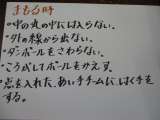 まもる時
・中の丸の中には入らない。
・外の線から出ない。
・ダンボールをさわらない。
・こうさしてボールをかえす。
・点を入れた、あい手チームに、はく手を
する。